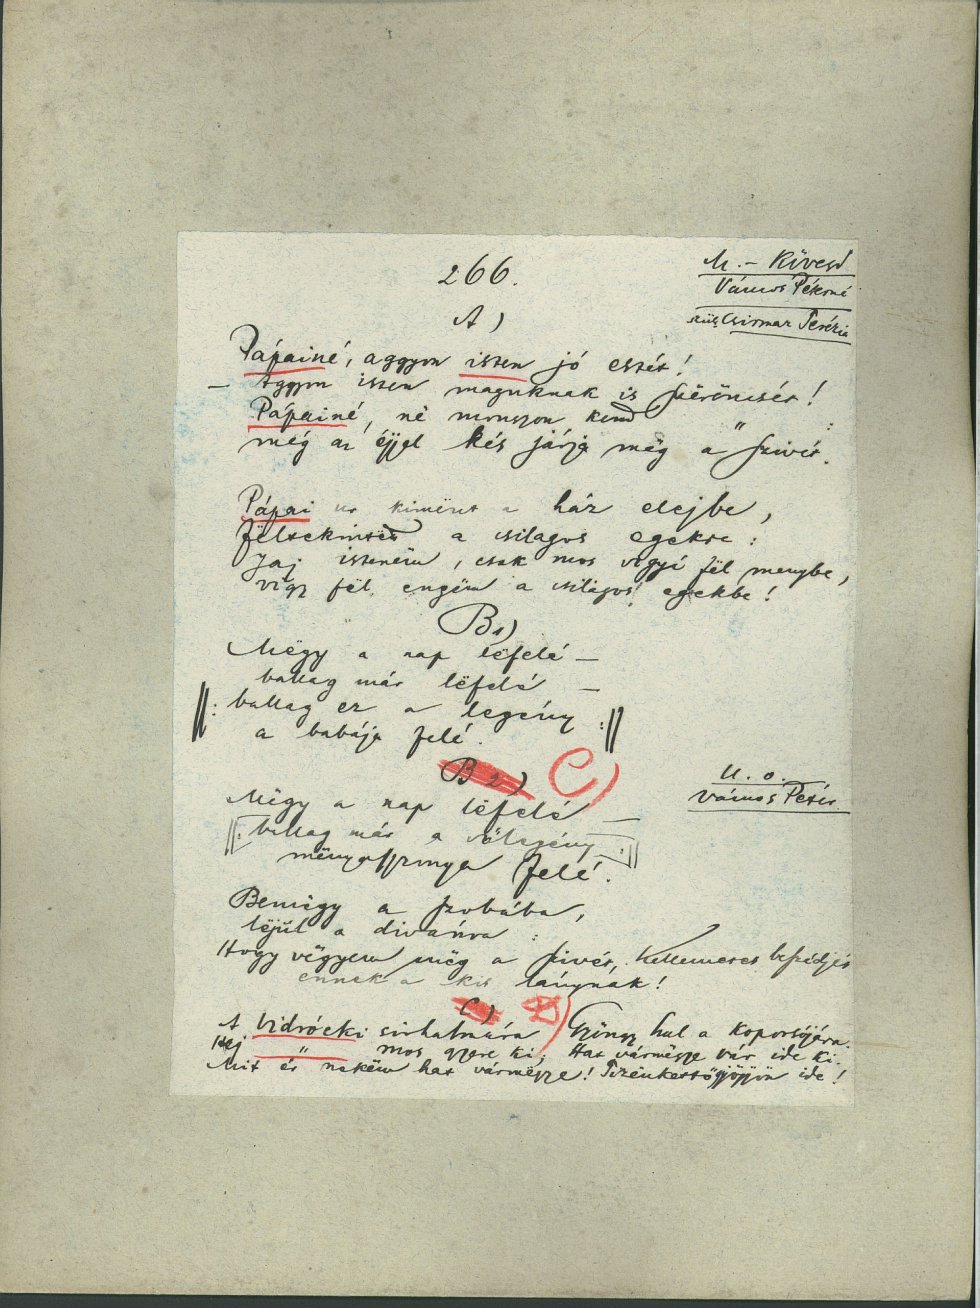 266.
M. - Kövesd
Vámos Pékné
szül. Csirmaz Terézia
A)
Pápainé, aggyon isten jó estét!
— Aggyon isten maguknak is szëröncsét!
Pápainé, në monygyon kend
még az éjjel kés járja mëg a szivit.
Pápai ur kimënt a ház elejbe,
fëltekintëtt a csilagos egekre:
Jaj istenëm, csak mos vigyé fël menybe,
vigy fël engëm a csilagos egekbe!
B1)
Mëgy a nap lëfelé —
ballag már lëfelé —
||: ballag ez a legény :||
a babája felé.
B2) C)
U. o.
Vámos Petër
Mëgy a nap lëfelé —
||: ballag már a vőlegény :||
mënyasszonya felé.
Bemëgy a szobába,
lëjül a divánra:
Hogy vëgyem mëg a szivét, kellemetes beszédjét
ennek a kis lánynak!
C) D)
A Vidrócki sirhalmára Gyöngy hul a koporsójára.
Hej " mos gyere ki, Hat vármëgye vár ide ki.
Mit ér nekëm hat vármëgye! Tizënkettő gyöjjön ide!